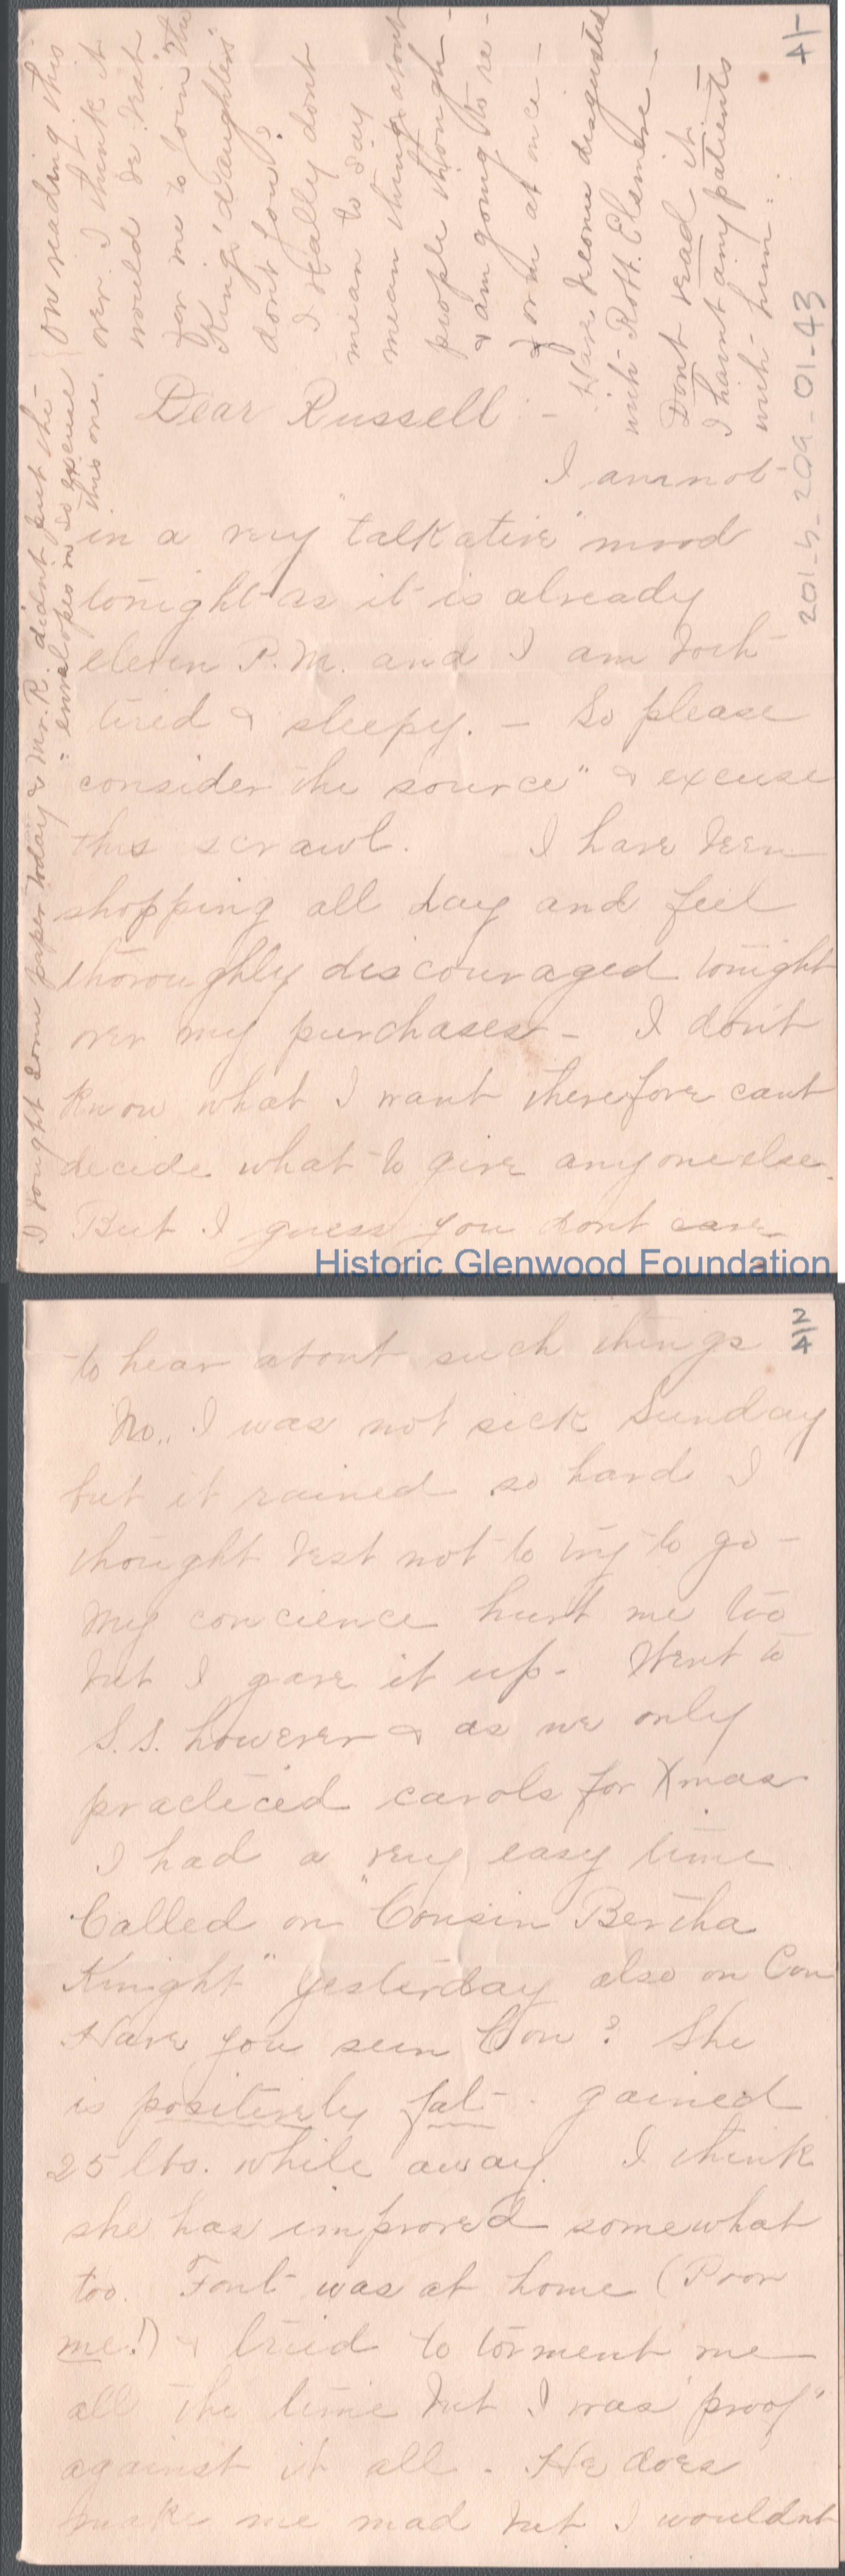 on reading this
over I think it
would be best
for me to join "The
King's daughters"
dont you?
I really dont
mean to say
mean things about
people though -
& am going to re-
form at once -
Have become disgusted
with Robt. Elsmere -
Dont read it.
I haint any patients
with him.
4/1
201-5-209-01-43
I bought some paper today & Mr. R. didn't put the
envelopes in so excuse
this one.
Dear Russell : -
I am not
in a very "talkative" mood
tonight as it is already
eleven P.M. and I am both
tired & sleepy. - So please
consider the source" & excuse
this scrawl. I have been
shopping all day and feel
thoroughly discouraged tonight
over my purchases - I don't
know what I want therefore cant
decide what to give anyone else.
But I guess you dont care
Historic Glenwood Foundation
2/4
to hear about such things
No, I was not sick Sunday
but it rained so hard I
thought best not to try to go -
My concience hurt me too
but I gave it up - Went to
S.S. however & as we only
practiced carols for Xmas
I had a very easy time
Called on "Cousin Bertha
Knight" yesterday also on Con
Have you seen Con? She
is positively fat - gained
25 lbs. while away. I think
she has improved somewhat
too. Font was at home (Poor
me!) & tried to torment me
all the time but I was "proof"
against it all. He does
make me mad but I wouldnt